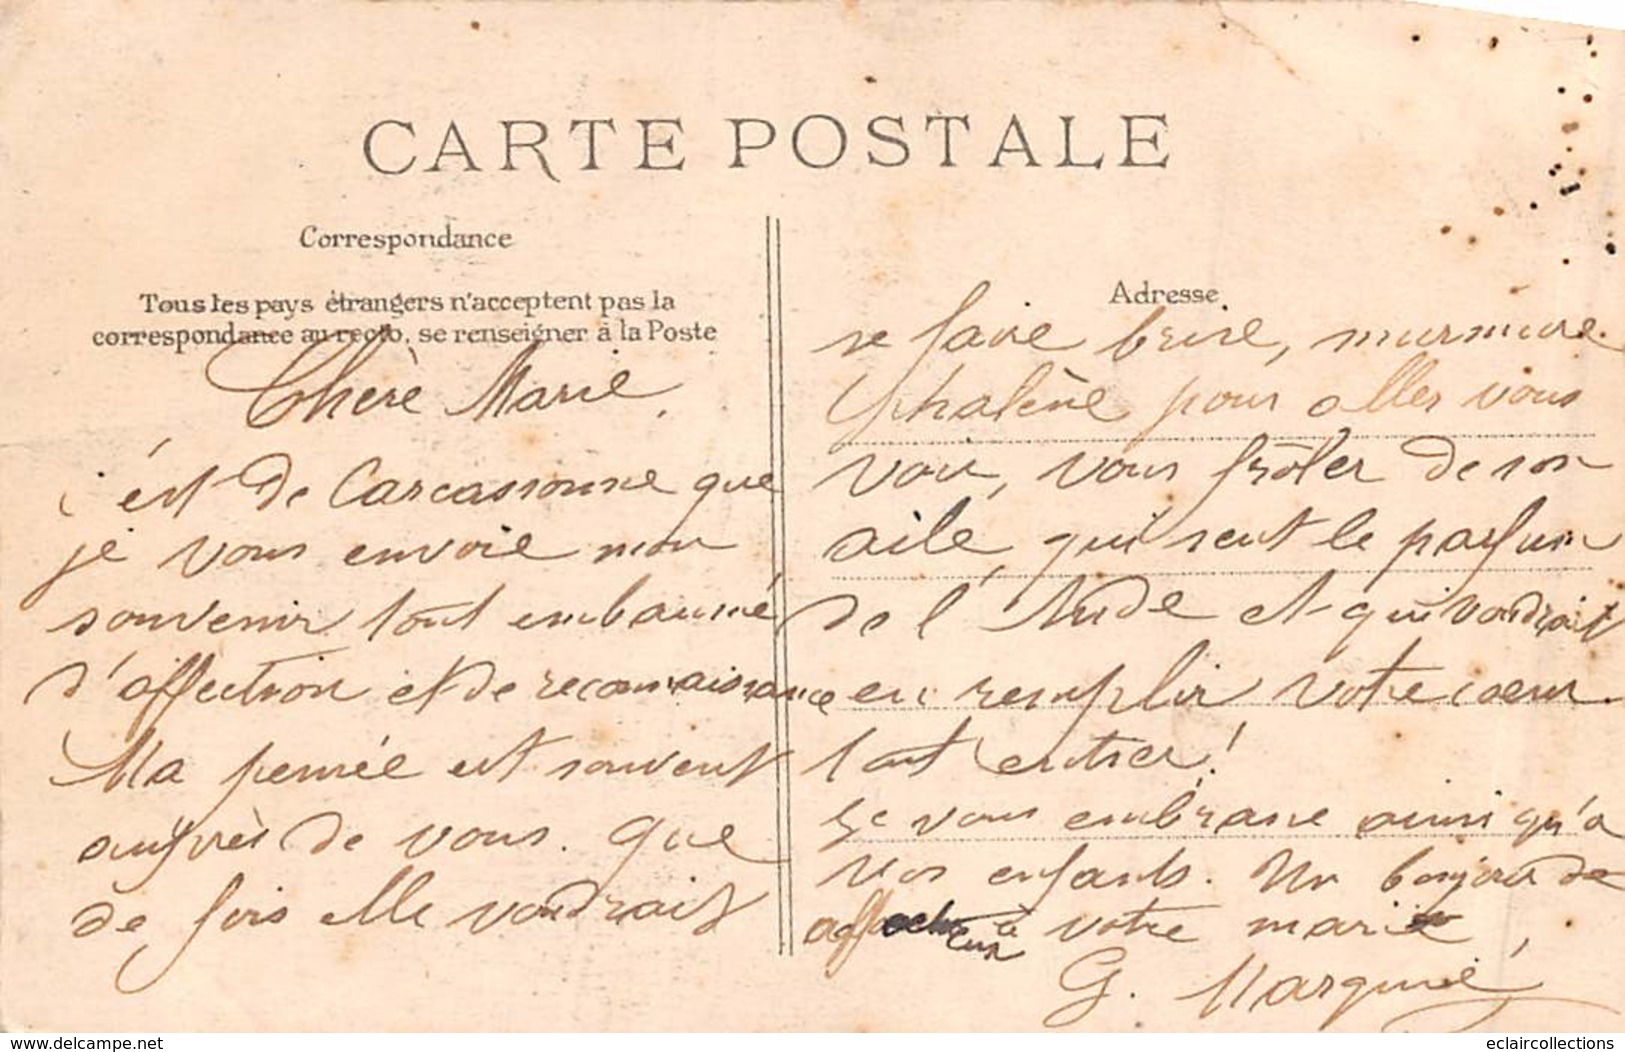 CARTE POSTALE
Correspondance
Tous les pays étrangers n'acceptent pas la
correspondance au recto, se renseigner à la Poste
Chère Marie,
c'est de Carcassonne que
je vous envoie mon
souvenir tout embaumé
d'affection et de reconnaissance
Ma pensée est souvent
auprès de vous. que
de fois elle voudrait
Adresse
se faire brise, murmure
phalène pour aller vous
voir, vous frôler de son
aile, qui sent le parfum
de l'Aude et qui voudrait
en remplir votre coeur
tout entier!
Je vous embrasse ainsi qu'à
vos enfants. Un bonjour de
à votre mari,
G. Marquié
delcampe.net
eclaircollections